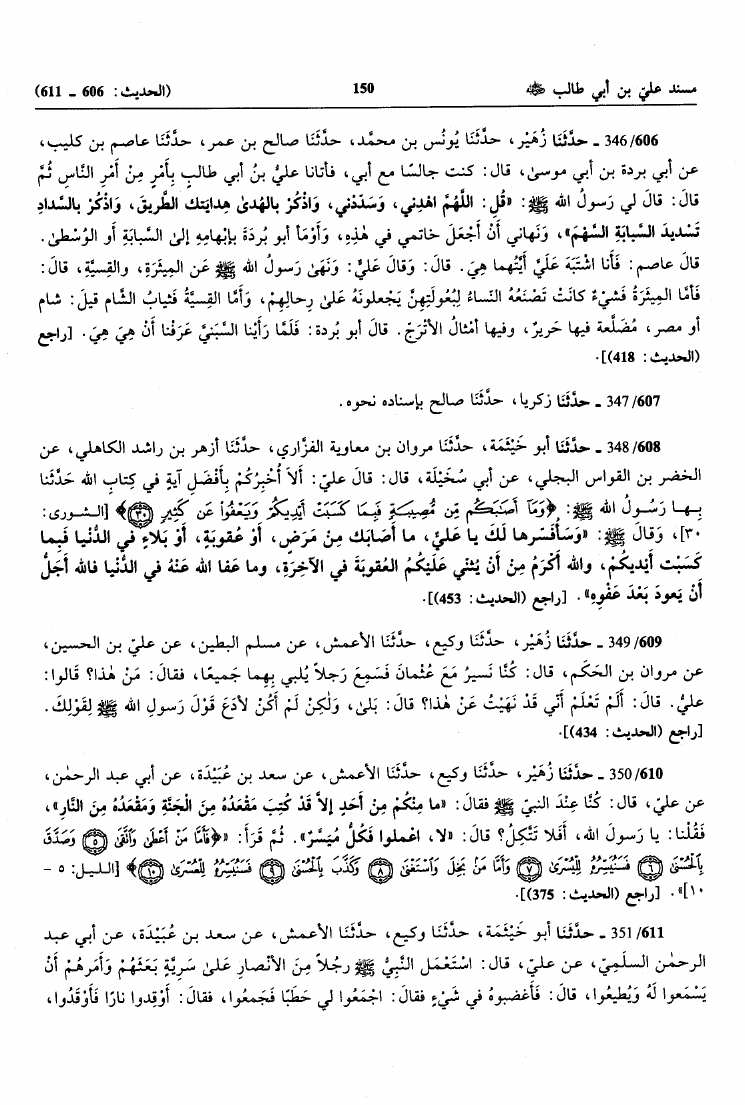 مسند عليّ بن أبي طالب ﷺ 150 (الحديث: 606 ـ 611)
346/606 ـ حدَّثنَا زُهَيْر، حدَّثنَا يُونُس بن محمَّد، حدَّثنَا صالح بن عمر، حدَّثنَا عاصم بن كليب،
عن أبي بردة بن أبي موسىٰ، قال: كنت جالسًا مع أبي، فأتانا عليُّ بنُ أبي طالبٍ بِأَمْرٍ مِنْ أَمْرِ النَّاسِ ثُمَّ
قالَ: قالَ لي رَسولُ الله ﷺ: «قُلِ: اللَّهُمَّ اهْدِني، وَسَدِّدْني، وَاذْكُرْ بالهُدَىٰ هِدايَتك الطَّريقَ، وَاذْكُرْ بالسَّدادِ
تَسْديدَ السَّبابَةِ السَّهْمَ»، وَنَهاني أَنْ أَجْعَلَ خاتمي في هٰذِهِ، وَأَوْمَأَ أبو بُردَةَ بإبْهامِهِ إلىٰ السَّبابَةِ أو الوُسْطىٰ.
قالَ عاصم: فَأَنا اشْتَبَهَ عَلَيَّ أَيَّتُهما هِيَ. قالَ: وَقالَ عَليٌّ: وَنَهىٰ رَسولُ الله ﷺ عَنِ المِيثَرَةِ، والقِسيَّةِ، قالَ:
فَأمَّا المِيثَرَةُ فَشَيْءٌ كانَتْ تَصْنَعُهُ النِّساءُ لِبُعُولَتِهِنَّ يَجْعَلونَهُ عَلىٰ رِحالِهِمْ، وَأَمَّا القِسِيَّةُ فَثِيابُ الشَّام قيلَ: شام
أو مصر، مُضَلَّعة فيها حَريرٌ، وفيها أمْثالُ الأُتْرُجِّ. قالَ أبو بُردة: فَلَمَّا رَأَيْنا السَّبَنيَّ عَرَفْنا أَنْ هِيَ هِيَ. [راجع
(الحديث: 418)].
347/607 ـ حدَّثنَا زكريا، حدَّثنَا صالح بإسناده نحوه.
348/608 ـ حدَّثنَا أبو خَيْثَمَة، حدَّثنَا مروان بن معاوية الفزَّاري، حدَّثنَا أزهر بن راشد الكاهلي، عن
الخضر بن القواس البجلي، عن أبي سُخَيْلَة، قال: قالَ عليّ: أَلاَ أُخْبِرُكُمْ بِأَفْضَلِ آيَةٍ في كِتابِ الله حَدَّثَنا
بِها رَسُولُ الله ﷺ: ﴿وَمَآ أَصَٰبَكُم مِّن مُّصِيبَةٍ فَبِمَا كَسَبَتْ أَيْدِيكُمْ وَيَعْفُواْ عَن كَثِيرٍ ﴿٣٠﴾﴾ [الشورى:
٣٠]، وَقالَ ﷺ: «وَسَأُفَسِّرها لَكَ يا عَليُّ، ما أَصابَكَ مِنْ مَرَضٍ، أَوْ عُقوبَةٍ، أَوْ بَلاءٍ في الدُّنْيا فَبِما
كَسَبَتْ أَيْديكُمْ، والله أَكْرَمُ مِنْ أَنْ يُثَنِّي عَلَيْكُمُ العُقوبَةَ في الآخِرَةِ، وما عَفا الله عَنْهُ في الدُّنْيا فالله أَجَلُّ
أَنْ يَعودَ بَعْدَ عَفْوِهِ». [راجع (الحديث: 453)].
349/609 ـ حدَّثنَا زُهَيْر، حدَّثنَا وكيع، حدَّثنَا الأعمش، عن مسلم البطين، عن عليّ بن الحسين،
عن مروان بن الحَكَم، قال: كُنَّا نَسيرُ مَعَ عُثْمانَ فَسَمِعَ رَجلاً يُلبي بِهِما جَميعًا، فقالَ: مَنْ هٰذا؟ قالوا:
عليُّ. قالَ: أَلَمْ تَعْلَمْ أنِّي قَدْ نَهَيْتُ عَنْ هٰذا؟ قالَ: بَلىٰ، وَلٰكِنْ لَمْ أَكُنْ لأَدَعَ قَوْلَ رَسولِ الله ﷺ لِقَوْلِكَ.
[راجع (الحديث: 434)].
350/610 ـ حدَّثنَا زُهَيْر، حدَّثنَا وكيع، حدَّثنَا الأعمش، عن سعد بن عُبَيْدَة، عن أبي عبد الرحمٰن،
عن عليّ، قال: كُنَّا عِنْدَ النبيّ ﷺ فقالَ: «ما مِنْكُمْ مِنْ أَحَدٍ إلاَّ قَدْ كُتِبَ مَقْعَدُهُ مِنَ الجَنَّةِ وَمَقْعَدُهُ مِنَ النَّارِ»،
فَقُلْنا: يا رَسولَ الله، أَفَلا نَتَّكِلُ؟ قالَ: «لا، اعْمَلوا فَكُلٌّ مُيَسَّرٌ». ثُمَّ قَرَأَ: «﴿فَأَمَّا مَنْ أَعْطَىٰ وَٱتَّقَىٰ ﴿٥﴾ وَصَدَّقَ
بِٱلْحُسْنَىٰ ﴿٦﴾ فَسَنُيَسِّرُهُ لِلْيُسْرَىٰ ﴿٧﴾ وَأَمَّا مَنْ بَخِلَ وَٱسْتَغْنَىٰ ﴿٨﴾ وَكَذَّبَ بِٱلْحُسْنَىٰ ﴿٩﴾ فَسَنُيَسِّرُهُ لِلْعُسْرَىٰ ﴿١٠﴾﴾ [الليل: ٥ -
١٠]». [راجع (الحديث: 375)].
351/611 ـ حدَّثنَا أبو خَيْثَمَة، حدَّثنَا وكيع، حدَّثنَا الأعمش، عن سعد بن عُبَيْدَة، عن أبي عبد
الرحمٰن السلَميّ، عن عليّ، قال: اسْتَعْمَلَ النَّبيُّ ﷺ رجُلاً مِنَ الأَنْصارِ عَلىٰ سَريَّةٍ بَعَثَهُمْ وَأَمَرَهُمْ أَنْ
يَسْمَعوا لَهُ وَيُطيعُوا، قالَ: فَأَغضبوهُ في شَيْءٍ فقالَ: اجْمَعُوا لي حَطَبًا فَجمَعُوا، فقالَ: أَوْقِدوا نارًا فَأَوْقَدُوا،